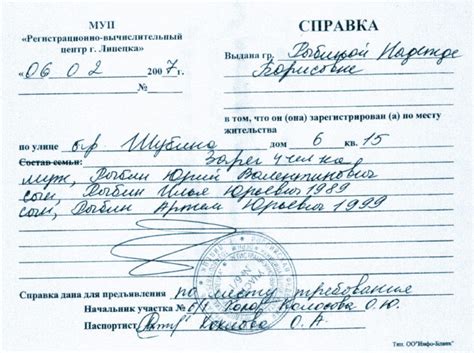 МУП
«Регистрационно-вычислительный
центр г. Липецка»
«06 02 2007 г.
СПРАВКА
Выдана гр. Рыбиной Надежде
Борисовне
в том, что он (она) зарегистрирован (а) по месту
жительства
по улице б-р Шубина дом 6 кв. 15
Состав семьи: Зарег
муж, Рыбин Юрий Валентинович
сын, Рыбин Илья Юрьевич 1989
сын, Рыбин Артем Юрьевич 1999
Справка дана для предъявления по месту требования
Начальник участка № 6/1 Колосова О.Ю.
Паспортист: Хохлова О.А.
Тип. ОО"Инфо-Бланк"